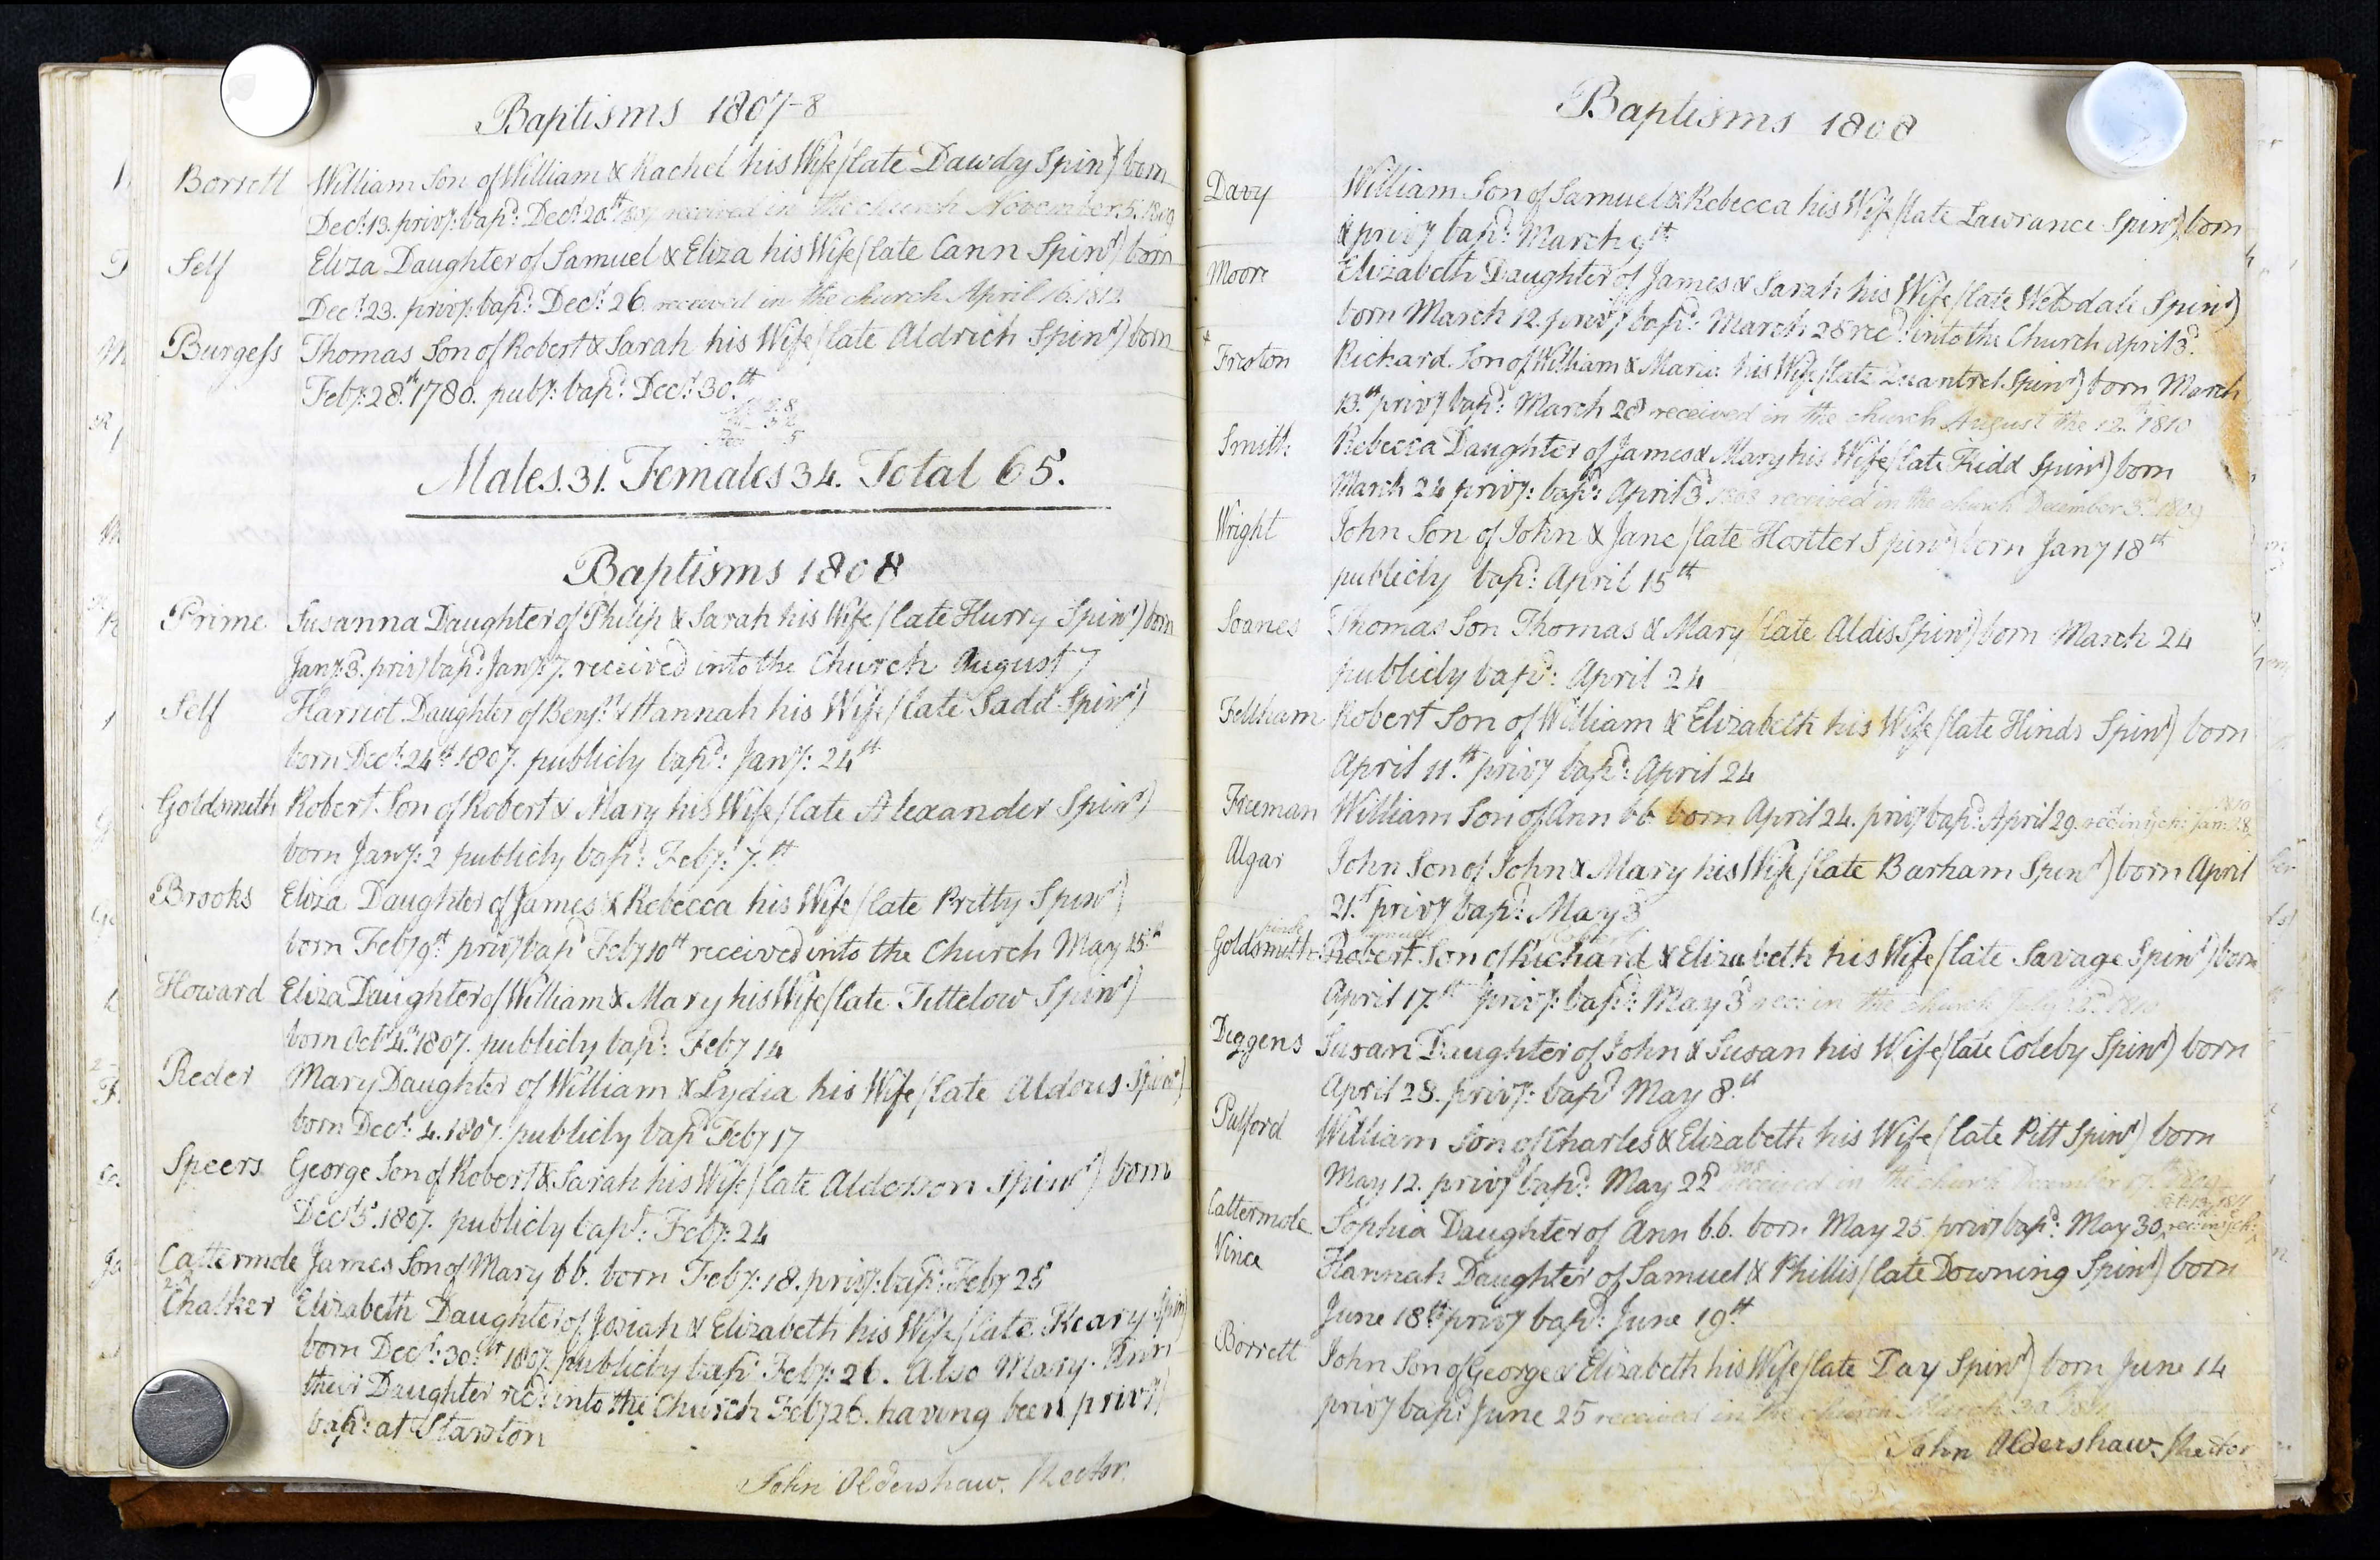 Baptisms 1807-8
Borrett William Son of William & Rachel his Wife (late Dawdy Spinr) born
Decr: 13. privy: bapd: Decr: 20th 1807 received in the church November 5. 1809
Self Eliza Daughter of Samuel & Eliza his Wife (late Cann Spinr) born
Decr: 23. privy: bapd: Decr: 26. received in the church April 16. 1812
Burgess Thomas Son of Robert & Sarah his Wife (late Aldrich Spinr) born
Feby: 28th. 1780. puby: bapd: Decr: 30.th
Males. 31. Females 34. Total 65.
Baptisms 1808
Prime Susanna Daughter of Philip & Sarah his Wife (late Hurry Spinr) born
Jany: 3. privy bapd: Jany: 7. received into the Church August 7
Self Harriot Daughter of Benjn: & Hannah his Wife (late Sadd Spinr)
born Decr: 24th 1807. publicly bapd: Jany: 24th
Goldsmith Robert Son of Robert & Mary his Wife (late Alexander Spinr)
born Jany: 2 publicly bapd: Feby: 7.th
Brooks Eliza Daughter of James & Rebecca his Wife (late Pritty Spinr)
born Feby 9th privy bapd Feby 10th received into the Church May 15th
Howard Eliza Daughter of William & Mary his Wife (late Tittelow Spinr)
born Octr 4th. 1807. publicly bapd: Feby 14
Reder Mary Daughter of William & Lydia his Wife (late Aldous Spinr)
born Decr: 4. 1807. publicly bapd Feby 17
Speers George Son of Robert & Sarah his Wife (late Alderson Spinr) born
Decr 5. 1807. publicly bapd: Feby: 24
Cattermole James Son of Mary bb. born Feby: 18. privy: bapd: Feby 25
Chalker Elizabeth Daughter of Josiah & Elizabeth his Wife (late Keary Spinr
born Decr: 30th 1807. publicly bapd Feby: 26. Also Mary. Ann
their Daughter recd: into the Church Feby 26. having been privy
bapd: at Starston
John Oldershaw. Rector.
Baptisms 1808
Davy William Son of Samuel & Rebecca his Wife (late Lawrance Spinr) born
& privy bapd: March 9th
Moore Elizabeth Daughter of James & Sarah his Wife (late Spinr)
born March 12. privy bapd: March 28 recd: into the Church April 3d.
Freston Richard Son of William & Maria his Wife (late Quantrel Spinr) born March
13.th privy bapd: March 28 received in the church August the 12th 1810
Smith Rebecca Daughter of James & Mary his Wife (late Kidd Spinr) born
March 24 privy: bapd: April 3d 1808 received in the church December 3d 1809
Wright John Son of John & Jane (late Hostter Spinr) born Jany 18th
publicly bapd: April 15th
Soanes Thomas Son Thomas & Mary (late Aldis Spinr) born March 24
publicly bapd: April 24
Feltham Robert Son of William & Elizabeth his Wife (late Hinds Spinr) born
April 11.th privy bapd: April 24
Freeman William Son of Ann bb. born April 24. privy bapd: April 29. recd in ye ch: Jan: 28 1810
Algar John Son of John & Mary his Wife (late Barham Spinr) born April
21.st privy bapd: May 3
Goldsmith Robert Son of Richard & Elizabeth his Wife (late Savage Spinr) born
April 17th privy: bapd: May 3d rec: in the church July 1810
Diggens Susan Daughter of John & Susan his Wife (late Coleby Spinr) born
April 28. privy: bapd May 8.th
Pulford William Son of Charles & Elizabeth his Wife (late Pitt Spinr) born
May 12. privy bapd: May 22d received in the church December 17th 1809
Cattermole Sophia Daughter of Ann b.b. born May 25. privy bapd: May 30. rec: in ye ch:
Vince Hannah Daughter of Samuel & Phillis (late Downing Spinr) born
June 18th privy bapd: June 19th
Borrett John Son of George & Elizabeth his Wife (late Day Spinr) born June 14
privy bapd: June 25 received in the church March
John Oldershaw. Rector